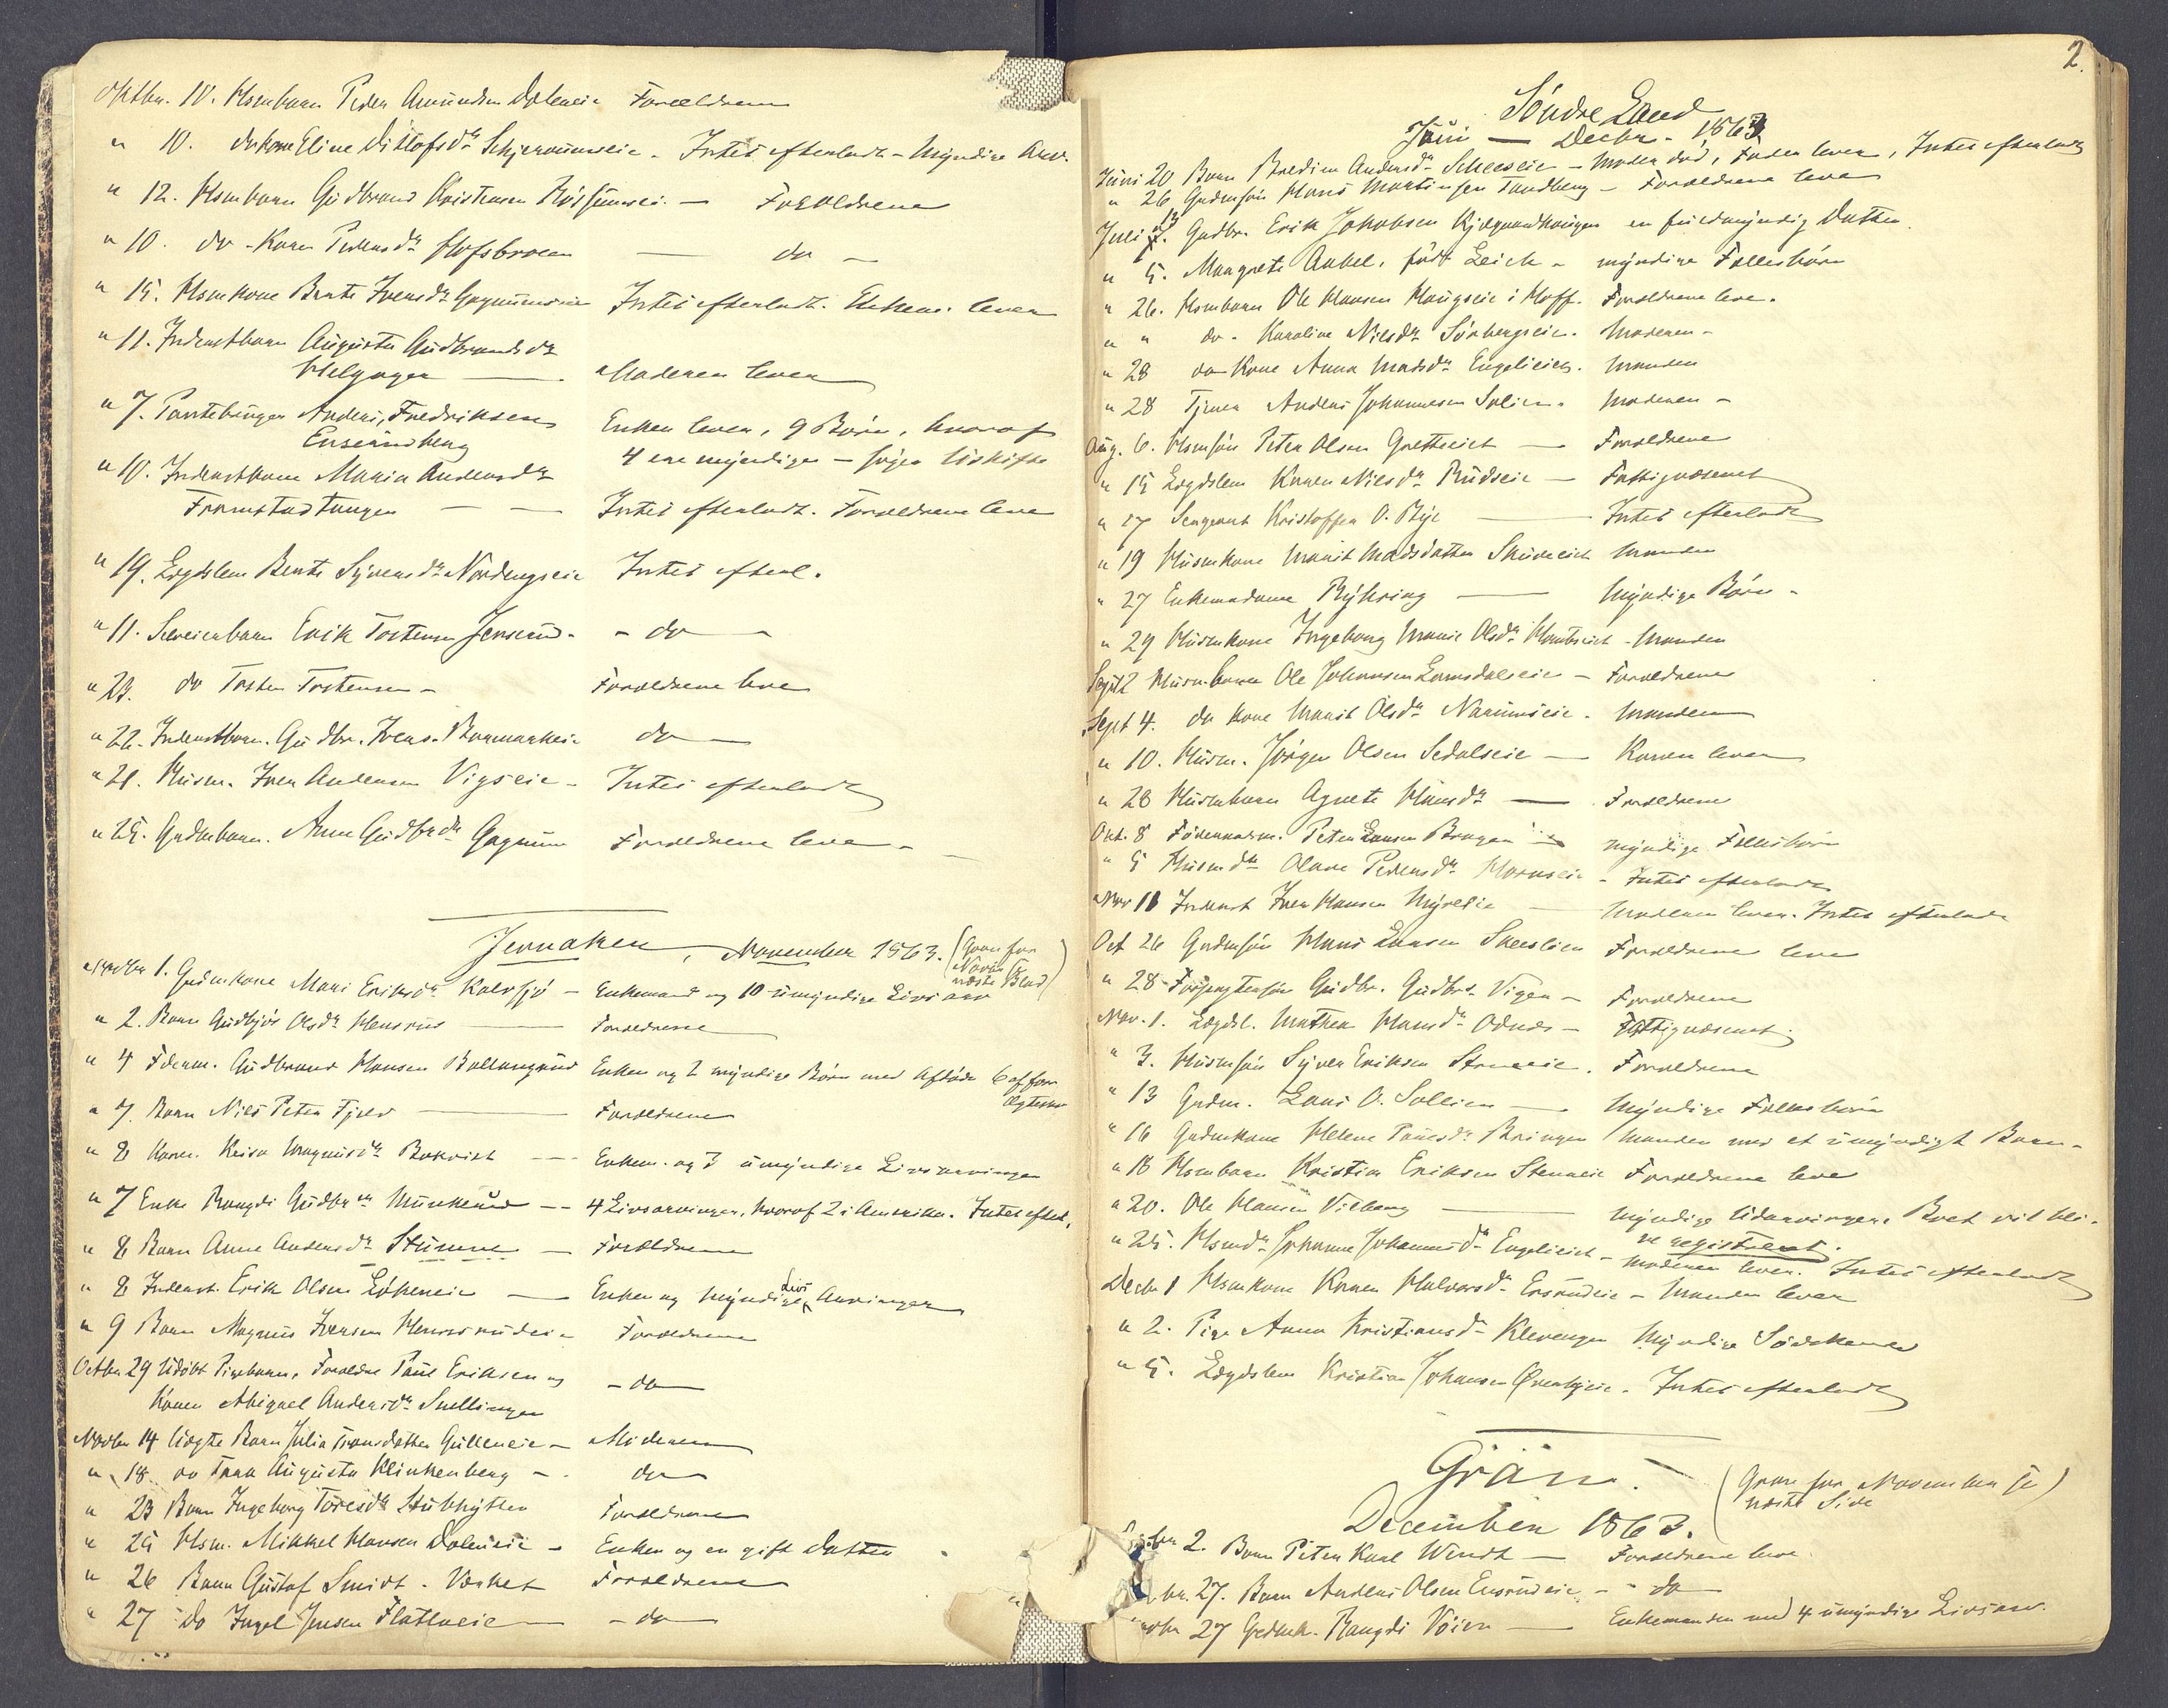 Oktbr. 10. Hsmbarn Peder Amundsen Daleneie Forældrene
" 10. do kone Eline Distofsdr Schjervumseie - Intet efterladt - Myndige Arv.
" 12. Hsmbarn Gudbrand Kristiansen Røssumeie. — Forældrene
" 10. do - Karen Pedersdr Hofsbroen — do —
" 15. Hsmkone Berte Iversdr Gagnumseie Intet efterladt. Enkem. lever
" 11. Inderstbarn Augusta Gudbrandsdr
Helgager — Moderen lever
" 7. Partebruger Anders Fredriksen Enken lever, 9 Børn, hvoraf
Enserudberg 4 ere myndige — søger Uskifte
" 10. Inderstkone Maria Andersdr
Framstadtangen — — Intet efterladt. Forældrene leve
" 19. Lægdslem Berte Syversdr Nordengseie Intet efterl.
" 11. Selveierbarn Erik Tostensen Jensrud - - do -
" 23. do Tosten Tostensen - Forældrene leve
" 22. Inderstbarn. Gudbr. Ivers. Burmarkeie do —
" 21. Husm. Iver Andersen Vigseie - Intet efterladt
" 25. Grdmbarn. Anne Gudbrdr Gagnum Forældrene leve -
Jevnaker, November 1863. (Gran for
Novbr. se
næste Blad)
Novbr 1. Grdmkone Mari Eriksdr Kalvsjø - Enkemand og 10 umyndige Livsarv
" 2. Barn Gudbjør Olsdr Hensrud — Forældrene
" 4 Føderm. Gudbrand Hansen Ballangrud Enken og 2 myndige Børn med Afdøde & af før
Ægteskab
" 7. Barn Nils Peter Fjeld — Forældrene
" 8 Konen. Keisa Magnusdr Bakviet — Enkem. og 3 umyndige Livsarvinger
" 7 Enke Rangdi Gudbrdr Munkerud — 4 Livsarvinger, hvoraf 2 i Amerika. Intet efterl.
" 8 Barn Anne Andersdr Stumne — Forældrene
" 8 Inderst. Erik Olsen Løkeneie — Enken og myndige Livs Arvinger
" 9 Barn Magnus Iversen Hennesrudeie Forældrene
Octbr 29 Udøbt Pigebarn, Forældre Paul Eriksen og - do —
Konen Abigael Andersdr Snellingen
Novbr 14 Uægte Barn Julia Transdatter Gulleneie - Moderen
" 18 do Trea Augusta Klinkenberg - do
" 23 Barn Ingeborg Toresdr Stubhytten Forældrene
" 25 Hsm. Mikkel Hansen Daleneie - Enken og en gift Datter
" 26 Barn Gustaf Smidt - Værket Forældrene
" 27 do Ingel Jensen Flatlaeie - do —
2.
Søndre Land
Juni — Decbr. 1863
Juni 20 Barn Bredine Andersdr Scheeseie - Moder død, Fader lever, Intet efterladt
" 26 Grdmsøn Hans Martinsen Tandberg - Forældrene leve
Juli 12. Grdbr. Erik Jakobsen Kjægvandkongen en fuldmyndig Datter.
" 5. Margrete Aakel, født Leich - myndige Fællesbørn
" 26. Hsmbarn Ole Hansen Haugseie i Hoff. Forældrene leve.
" " do - Karoline Nilsdr Sørbergseie. Moderen -
" 28 do Kone Anna Madsdr Engelieie. Manden
" 28 Tjener Anders Johannesen Solien. Moderen -
Aug. 6. Hsmsøn Peter Olsen Gretteeiet — Forældrene
" 15 Lægdslem Karen Nilsdr Rudseie — Fattigvæsenet
" 17 Sergeant Kristoffer O. Bye — Intet efterladt
" 19 Husmkone Marit Madsdatter Skudeeiet Manden
" 27 Enkemadame Rühring — Myndige Børn -
" 29 Husmkone Ingeborg Marie Olsdr Hombseiet - Manden
Sept 2 Husm.barn Ole Johansen Lomsdalseie - Forældrene
Sept 4. do kone Marit Olsdr Narumseie. Manden
" 10. Husm. Jørgen Olsen Sedalseie — Konen lever
" 28 Husmbarn Agnete Hansdr — Forældrene
Oct. 8 Føderaadsm. Peter Larsen Bragen — myndige Fællesbørn
" 5 Husmdtr Olave Pedersdr Hornseie - Intet efterladt
Nov 11 Inderst Iver Hansen Myreeie — Moderen lever. Intet efterladt
Oct 26 Grdmsøn Hans Larsen Skeeslien Forældrene leve
" 28 Forpagtersøn Gudbr. Gudbrs. Vigen — Forældrene
Nov. 1. Lægdsl. Mathea Hansdr Odnæs - Fattigvæsenet.
" 3. Husmsøn Syver Eriksen Steneeie. Forældrene
" 13 Grdm. Lars O. Sollien — Myndige Fællesbørn
" 16 Grdmkone Helene Paulsdr Bringen Manden med et umyndigt Barn -
" 18 Hsmbarn Kristian Eriksen Steneeie Forældrene leve
" 20. Ole Hansen Vilberg — Myndige Udarvinger. Boet vil bli-
ve registreret.
" 25. Hsmdr Johanne Johannesdr Engelieiet - Moderen lever. Intet efterladt
Decbr 1 Hsmkone Karen Halvorsdr Ersrudeie - Manden lever
" 2. Pige Anna Kristiansdr Klevengen Myndige Sødskende
" 5. Lægdslem Kristian Johansen Øverbyeie. Intet efterladt
Gran. (Gran for November se
næste Side)
December 1863.
Decbr. 2. Barn Peter Karl Wendt — Forældrene leve
br. 27. Barn Anders Olsen Ensrudeie - - do
ovbr 27 Grdmk. Rangdi Vøien — Enkemanden med 4 umyndige Livsarv.